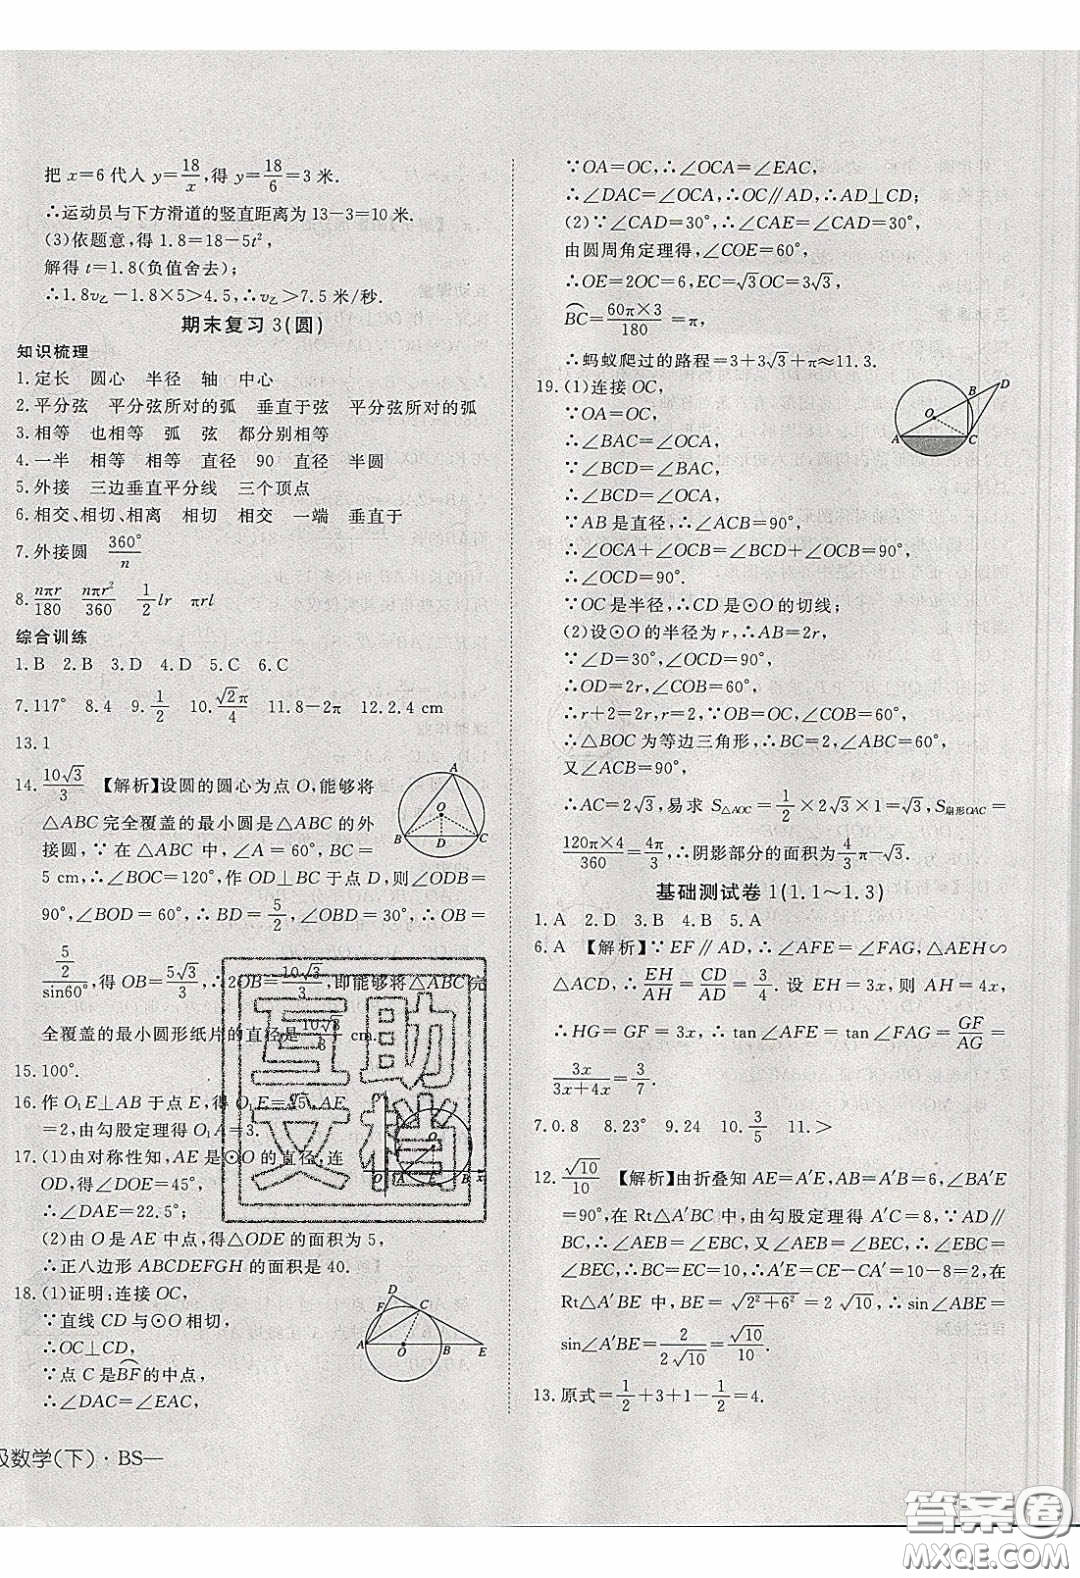 把 x=6 代人 y=18/x, 得 y=18/6=3 米.
∴运动员与下方滑道的竖直距离为 13-3=10 米.
(3)依题意,得 1.8=18-5t²,
解得 t=1.8(负值舍去);
∴1.8v乙-1.8×5>4.5,∴v乙>7.5 米/秒.
期末复习 3(圆)
知识梳理
1.定长 圆心 半径 轴 中心
2.平分弦 平分弦所对的弧 垂直于弦 平分弦所对的弧
3.相等 也相等 弧 弦 都分别相等
4.一半 相等 相等 直径 90 直径 半圆
5.外接 三边垂直平分线 三个顶点
6.相交、相切、相离 相切 相交 一端 垂直于
7.外接圆 360°/n
8. nπr/180 nπr²/360 1/2 lr πrl
综合训练
1.B 2.B 3.D 4.D 5.C 6.C
7.117° 8.4 9. 1/2 10. √2π/4 11.8-2π 12.2.4 cm
13.1
14. 10√3/3 【解析】设圆的圆心为点 O,能够将
△ABC完全覆盖的最小圆是△ABC 的外
接圆,∵在△ABC 中,∠A=60°,BC=
5 cm,∴∠BOC=120°,作 OD⊥BC 于点 D,则∠ODB=
90°,∠BOD=60°,∴BD=5/2,∠OBD=30°,∴OB=
(5/2)/sin60°,得 OB=5√3/3,∴2OB=10√3/3,即能够将△ABC 完
全覆盖的最小圆形纸片的直径是 10√3/3 cm.
15.100°.
16.作 O₁E⊥AB 于点 E,得 O₁E=√5,AE
=2,由勾股定理得 O₁A=3.
17.(1)由对称性知,AE是⊙O 的直径,连
OD,得∠DOE=45°,
∴∠DAE=22.5°;
(2)由 O 是 AE 中点,得△ODE 的面积为 5,
∴正八边形 ABCDEFGH 的面积是 40.
18.(1)证明:连接 OC,
∵直线 CD 与⊙O 相切,
∴OC⊥CD,
∵点 C 是B͡F的中点,
∴∠DAC=∠EAC,
级数学(下)·BS—
∵OA=OC,∴∠OCA=∠EAC,
∴∠DAC=∠OCA,∴OC∥AD,∴AD⊥CD.
(2)∵∠CAD=30°,∴∠CAE=∠CAD=30°,
由圆周角定理得,∠COE=60°,
∴OE=2OC=6,EC=√3OC=3√3,
B͡C=60π×3/180=π,
∴蚂蚁爬过的路程=3+3√3+π≈11.3.
19.(1)连接 OC,
∵OA=OC,
∴∠BAC=∠OCA,
∵∠BCD=∠BAC,
∴∠BCD=∠OCA,
∵AB是直径,∴∠ACB=90°,
∴∠OCA+∠OCB=∠BCD+∠OCB=90°,
∴∠OCD=90°.
∵OC是半径,∴CD是⊙O的切线;
(2)设⊙O的半径为 r,∴AB=2r,
∵∠D=30°,∠OCD=90°,
∴OD=2r,∠COB=60°,
∴r+2=2r,∴r=2,∵OB=OC,∠COB=60°,
∴△BOC为等边三角形,∴BC=2,
又∠ACB=90°,
∴AC=2√3,易求 S△AOC=1/2×2√3×1=√3,S扇形OAC=
120π×4/360=4π/3,∴阴影部分的面积为 4/3π-√3.
基础测试卷 1(1.1～1.3)
1.A 2.D 3.B 4.B 5.A
6.A 【解析】∵EF∥AD,∴∠AFE=∠FAG,△AEH∽
△ACD,∴EH/AH=CD/AD=3/4. 设 EH=3x,则 AH=4x,
∴HG=GF=3x,∴tan∠AFE=tan∠FAG=GF/AG=
3x/(3x+4x)=3/7.
7.0.8 8.23° 9.24 10. 3/5 11.>
12. √10/10 【解析】由折叠知 AE=A′E,AB=A′B=6,∠BA′E
=90°,在 Rt△A′BC 中,由勾股定理得 A′C=8,∵AD∥
BC,∴∠AEB=∠EBC,又∠AEB=∠A′EB,∴∠EBC=
∠BEC,∴BC=EC=10,∴A′E=CE-CA′=10-8=2,在
Rt△A′BE 中,BE=√(2²+6²)=2√10,∴sin∠ABE=
sin∠A′BE=2/(2√10)=√10/10.
13.原式=1/2+3+1-1/2=4.
A
O
B D C
O A E B x
D
F C
A O B E
B D
O
A C
互助
文档
答案卷
MXQE.COM